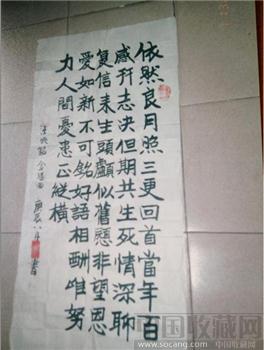 依然良月照三更回首當年百
感幷志決但期共生死情深聊
复信来生頭顱似舊慙非望恩
愛如新不可銘好語相酬唯努
力人間憂患正縱橫
庚辰八月
書
中国收藏网
www.socang.com 中国收藏网